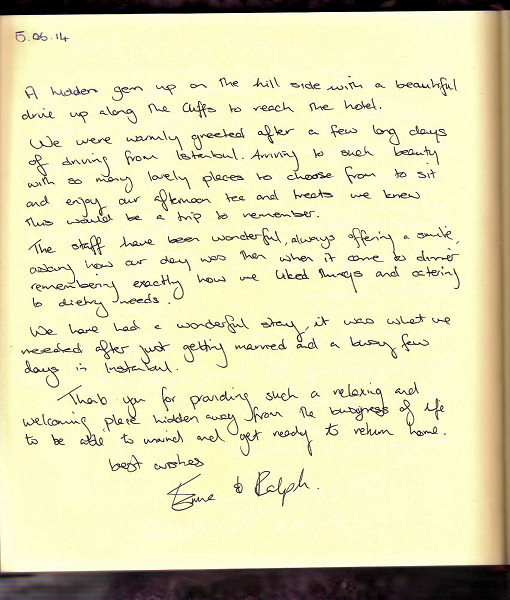 5.06.14
A hidden gem up on the hill side with a beautiful
drive up along the cliffs to reach the hotel.
We were warmly greeted after a few long days
of driving from Istanbul. Arriving to such beauty
with so many lovely places to choose from to sit
and enjoy our afternoon tea and treats we knew
this would be a trip to remember.
The staff have been wonderful, always offering a smile,
asking how our day was then when it came to dinner
remembering exactly how we liked things and catering
to dietry needs.
We have had a wonderful stay, it was what we
needed after just getting married and a busy few
days in Instanbul.
Thank you for providing such a relaxing and
welcoming place hidden away from the busyness of life
to be able to unwind and get ready to return home.
best wishes
& Ralph.